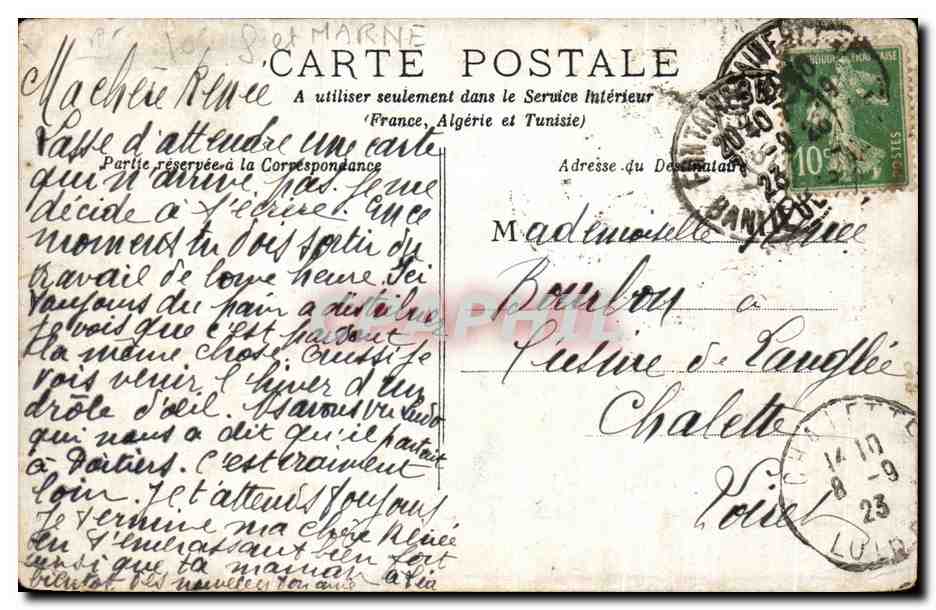 S et MARNE
CARTE POSTALE
A utiliser seulement dans le Service Intérieur
(France, Algérie et Tunisie)
Partie réservée à la Correspondance
Adresse du Destinataire
Ma chère Renée
Lasse d'attendre une carte
qui n'arrive pas je me
décide à t'écrire. En ce
moments tu dois sortir du
travail de bonne heure. Ici
toujours du pain a distribuer
Je vois que c'est partout
la même chose. Aussi je
vois venir l'hiver d'un
drôle d'oeil. Ns avons vu Ludo
qui nous a dit qu'il partait
à Poitiers. C'est vraiment
loin. Je t'attends toujours
Je termine ma chère Renée
en t'embrassant bien fort
ainsi que ta maman
bientôt des nouvelles
Mademoiselle Renée
Bourbon à
l'usine de Langlée
Chalette
Loiret
10c
POSTES
20 40
23
CHALETTE
14 10
8 -9
23
LOIR
CPAPHIL